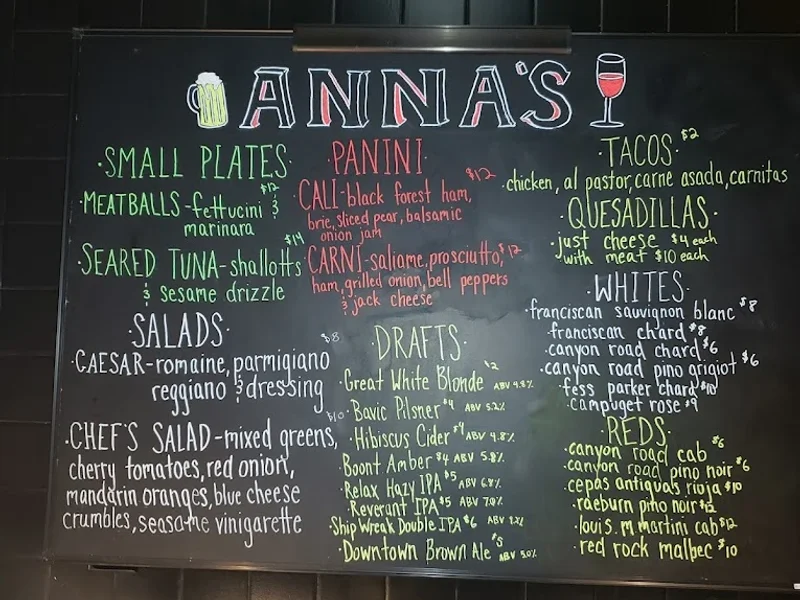 ANNA'S
SMALL PLATES
$12
MEATBALLS - fettucini &
marinara
$14
SEARED TUNA - shallotts
& sesame drizzle
SALADS
$8
CAESAR - romaine, parmigiano
reggiano & dressing
$10
CHEF'S SALAD - mixed greens,
cherry tomatoes, red onion,
mandarin oranges, blue cheese
crumbles, seasame vinigarette
PANINI
$12
CALI - black forest ham,
brie, sliced pear, balsamic
onion jam
CARNI - saliame, prosciutto, $12
ham, grilled onion, bell peppers
& jack cheese
DRAFTS
Great White Blonde $2 ABV 4.8%
Bavic Pilsner $4 ABV 5.2%
Hibiscus Cider $4 ABV 4.8%
Boont Amber $4 ABV 5.8%
Relax Hazy IPA $5 ABV 6.8%
Reverant IPA $5 ABV 7.0%
Ship Wreak Double IPA $6 ABV
Downtown Brown Ale $5 ABV 5.0%
TACOS $2
chicken, al pastor, carne asada, carnitas
QUESADILLAS
just cheese $4 each
with meat $10 each
WHITES
franciscan sauvignon blanc $8
franciscan chard $8
canyon road chard $6
canyon road pino grigiot $6
fess parker chard $10
campuget rose $9
REDS
canyon road cab $6
canyon road pino noir $6
cepas antiguas rioja $10
raeburn pino noir $12
louis m martini cab $12
red rock malbec $10